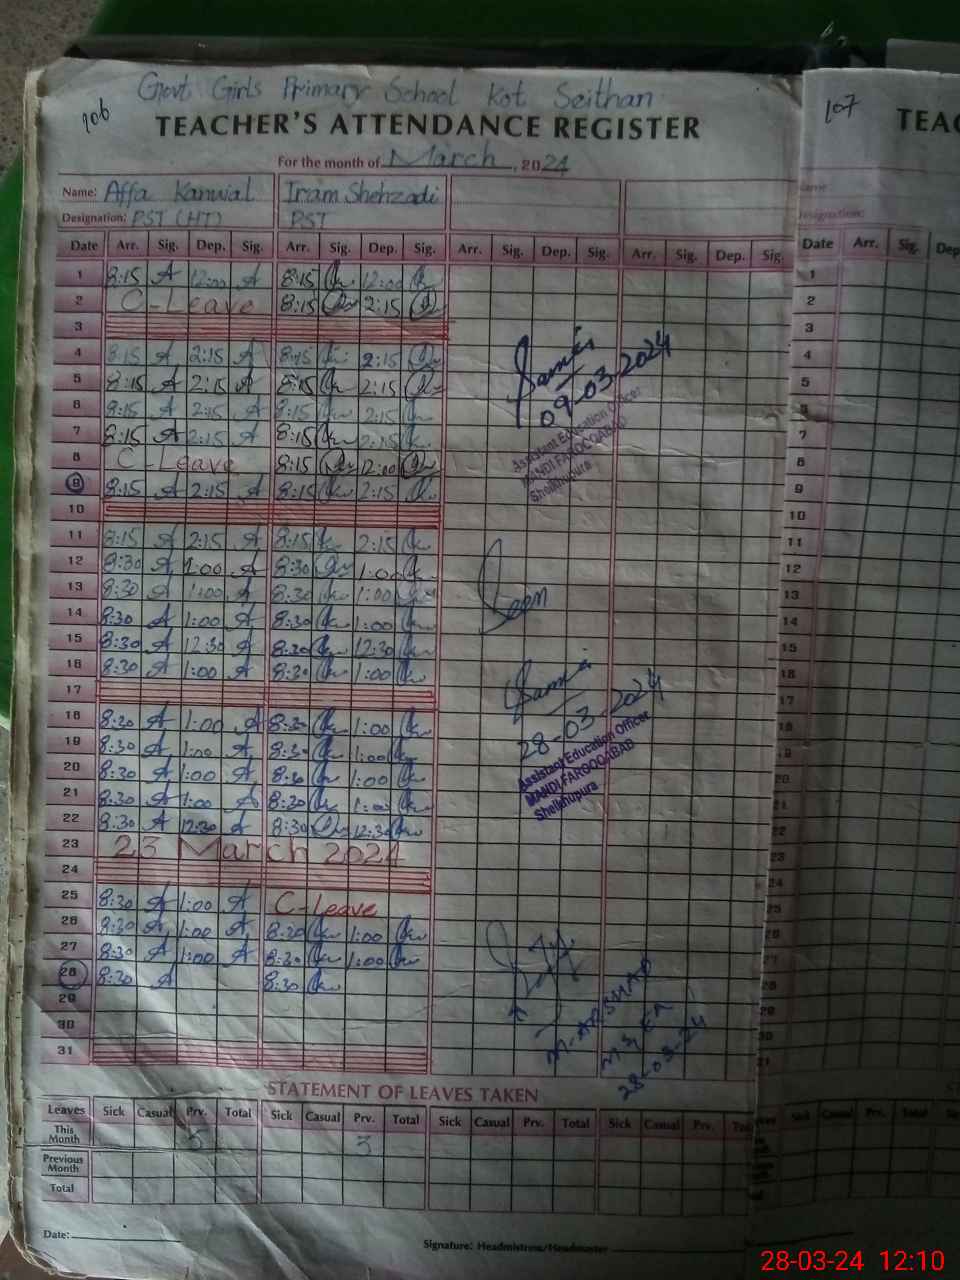 Govt Girls Primary School Kot Seithan
106
TEACHER'S ATTENDANCE REGISTER
For the month of March, 2024
Name: Affa Kanwal Iram Shehzadi
Designation: PST (HT) PST
Date Arr. Sig. Dep. Sig. Arr. Sig. Dep. Sig. Arr. Sig. Dep. Sig. Arr. Sig. Dep. Sig.
1 8:15 A 12:00 A 8:15 12:00
2 C-Leave 8:15 2:15
3
4 8:15 A 2:15 A 8:15 2:15
5 8:15 A 2:15 A 8:15 2:15
6 8:15 A 2:15 A 8:15 2:15
7 8:15 A 2:15 A 8:15 2:15
8 C-Leave 8:15 12:00
9 8:15 A 2:15 A 8:15 2:15
10
11 8:15 A 2:15 A 8:15 2:15
12 8:30 A 1:00 A 8:30 1:00
13 8:30 A 1:00 A 8:30 1:00
14 8:30 A 1:00 A 8:30 1:00
15 8:30 A 12:30 A 8:30 12:30
16 8:30 A 1:00 A 8:30 1:00
17
18 8:30 A 1:00 A 8:30 1:00
19 8:30 A 1:00 A 8:30 1:00
20 8:30 A 1:00 A 8:30 1:00
21 8:30 A 1:00 A 8:30 1:00
22 8:30 A 12:30 A 8:30 12:30
23 23 March 2024
24
25 8:30 A 1:00 A C-Leave
26 8:30 A 1:00 A 8:30 1:00
27 8:30 A 1:00 A 8:30 1:00
28 8:30 A 8:30
29
30
31
09-03-2024
Assistant Education Officer
MANDI FAROOQABAD
Sheikhupura
Seen
28-03-2024
Assistant Education Officer
MANDI FAROOQABAD
Sheikhupura
M. ARSHAD
MEA
28-03-24
STATEMENT OF LEAVES TAKEN
Leaves Sick Casual Prv. Total Sick Casual Prv. Total Sick Casual Prv. Total Sick Casual Prv.
This Month 3
Previous Month
Total
Date:
Signature: Headmistress/Headmaster
107
TEAC
Designation:
Date Arr. Sig. Dep
1
2
3
4
5
6
7
8
9
10
11
12
13
14
15
16
17
18
Sick Casual Prv. Total
28-03-24 12:10